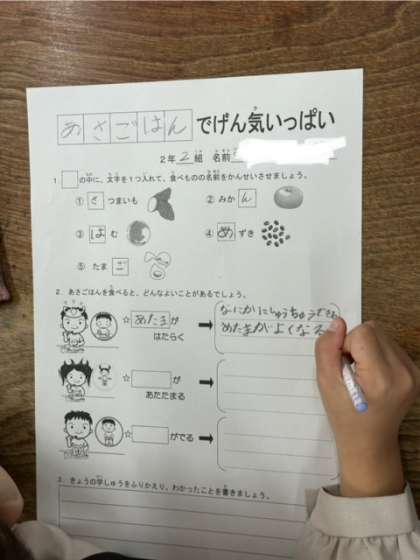 あさごはんでげん気いっぱい
2年 2組 名前
1. □の中に、文字を1つ入れて、食べものの名前をかんせいさせましょう。
① さつまいも ② みかん
③ はむ ④ めずき
⑤ たまご
2. あさごはんを食べると、どんなよいことがあるでしょう。
☆あたまが
はたらく
なにかにしゅうちゅうできる
あたまがよくなる
☆□が
あたたまる
☆□がでる
3. きょうの学しゅうをふりかえり、わかったことを書きましょう。